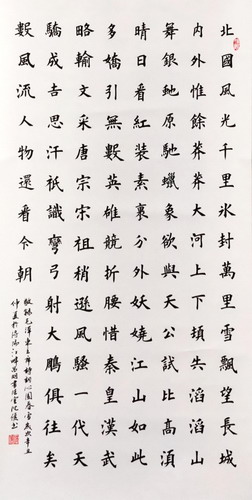 北國風光千里氷封萬里雪飄望長城
内外惟餘莽莽大河上下頓失滔滔山
舞銀虵原馳蠟象欲與天公試比高須
晴日看紅裝素裹分外妖嬈江山如此
多嬌引無數英雄競折腰惜秦皇漢武
略輸文采唐宗宋祖稍遜風騷一代天
驕成吉思汗祇識彎弓射大鵰俱往矣
數風流人物還看今朝
敬録毛澤東主席詩詞沁園春雪歲次辛丑
仲夏於